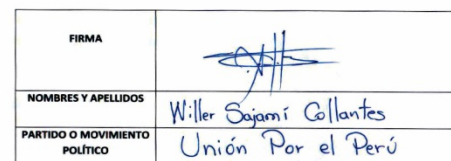 FIRMA
NOMBRES Y APELLIDOS
Willer Sajamí Collantes
PARTIDO O MOVIMIENTO
POLÍTICO
Unión Por el Perú